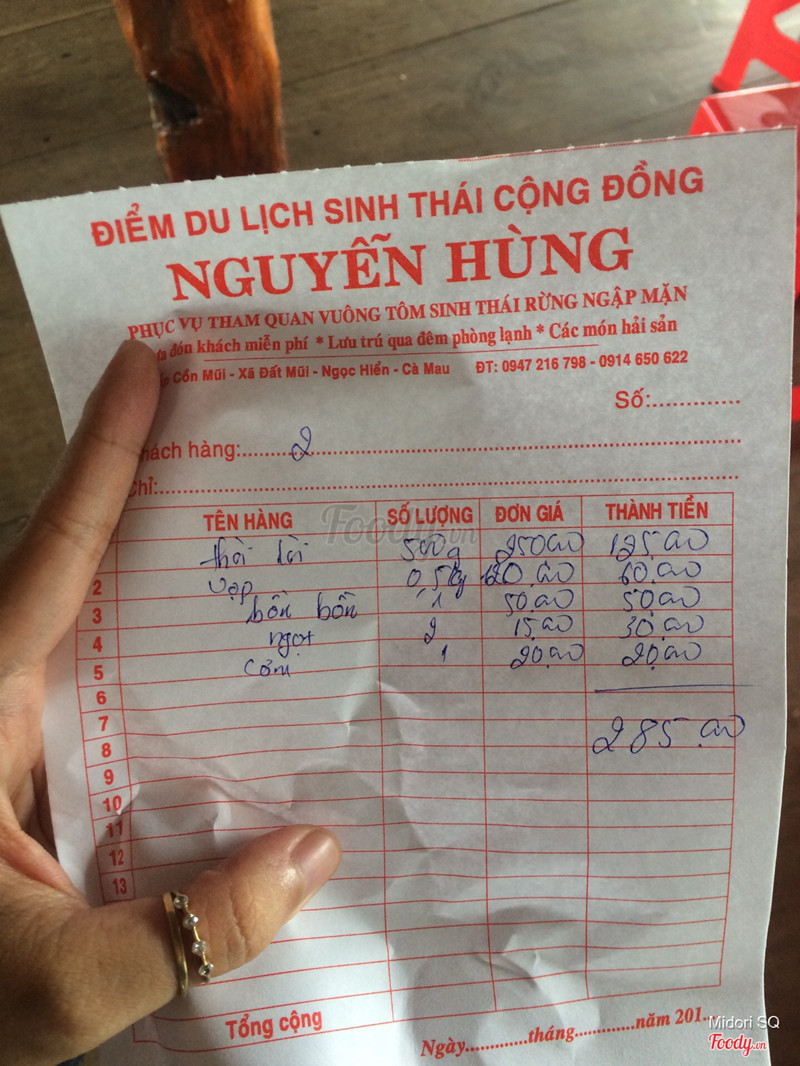 ĐIỂM DU LỊCH SINH THÁI CỘNG ĐỒNG
NGUYỄN HÙNG
PHỤC VỤ THAM QUAN VUÔNG TÔM SINH THÁI RỪNG NGẬP MẶN
đón khách miễn phí * Lưu trú qua đêm phòng lạnh * Các món hải sản
Cồn Mũi - Xã Đất Mũi - Ngọc Hiển - Cà Mau ĐT: 0947 216 798 - 0914 650 622
Số:.............
hách hàng:......2......
Chỉ:......
TÊN HÀNG SỐ LƯỢNG ĐƠN GIÁ THÀNH TIỀN
thòi lòi 500g 250.00 125.00
2 vọp 0,5kg 120.00 60.00
3 bồn bồn 1 50.00 50.00
4 ngọt 2 15.00 30.00
5 cơm 1 20.00 20.00
6
7 285.00
8
9
10
11
12
13
Tổng cộng
Ngày.............tháng............năm 201...
Foody.vn
Midori SQ
Foody.vn